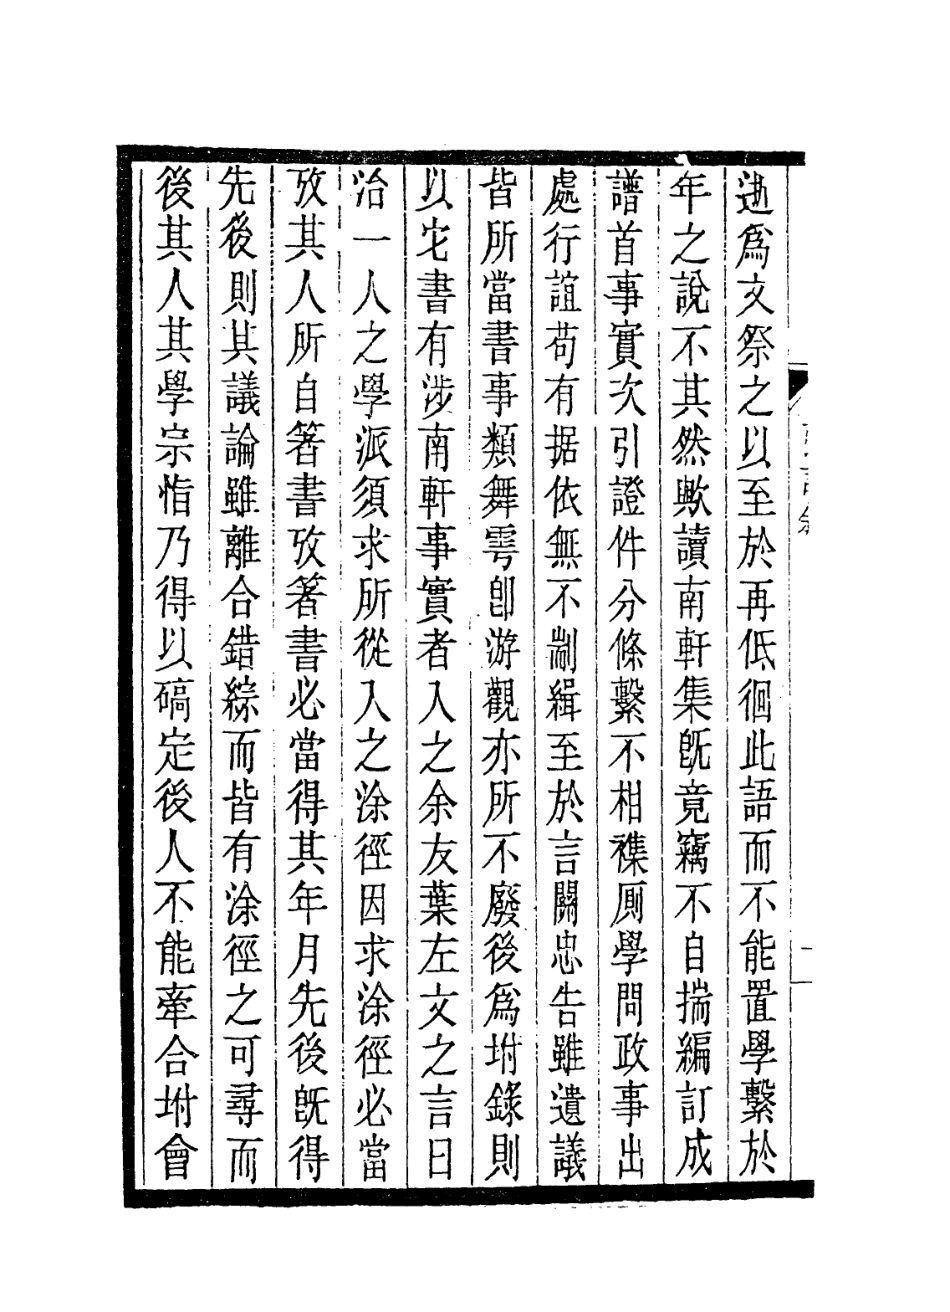 逝爲文祭之以至於再低徊此語而不能置學繫於
年之說不其然歟讀南軒集旣竟竊不自揣編訂成
譜首事實次引證件分條繫不相襍厠學問政事出
處行誼苟有据依無不剬緝至於言關忠告雖遺議
皆所當書事類舞雩卽游觀亦所不廢後爲坿錄則
以它書有涉南軒事實者入之余友葉左文之言曰
治一人之學派須求所從入之涂徑因求涂徑必當
攷其人所自箸書攷箸書必當得其年月先後旣得
先後則其議論雖離合錯綜而皆有涂徑之可尋而
後其人其學宗恉乃得以碻定後人不能牽合坿會